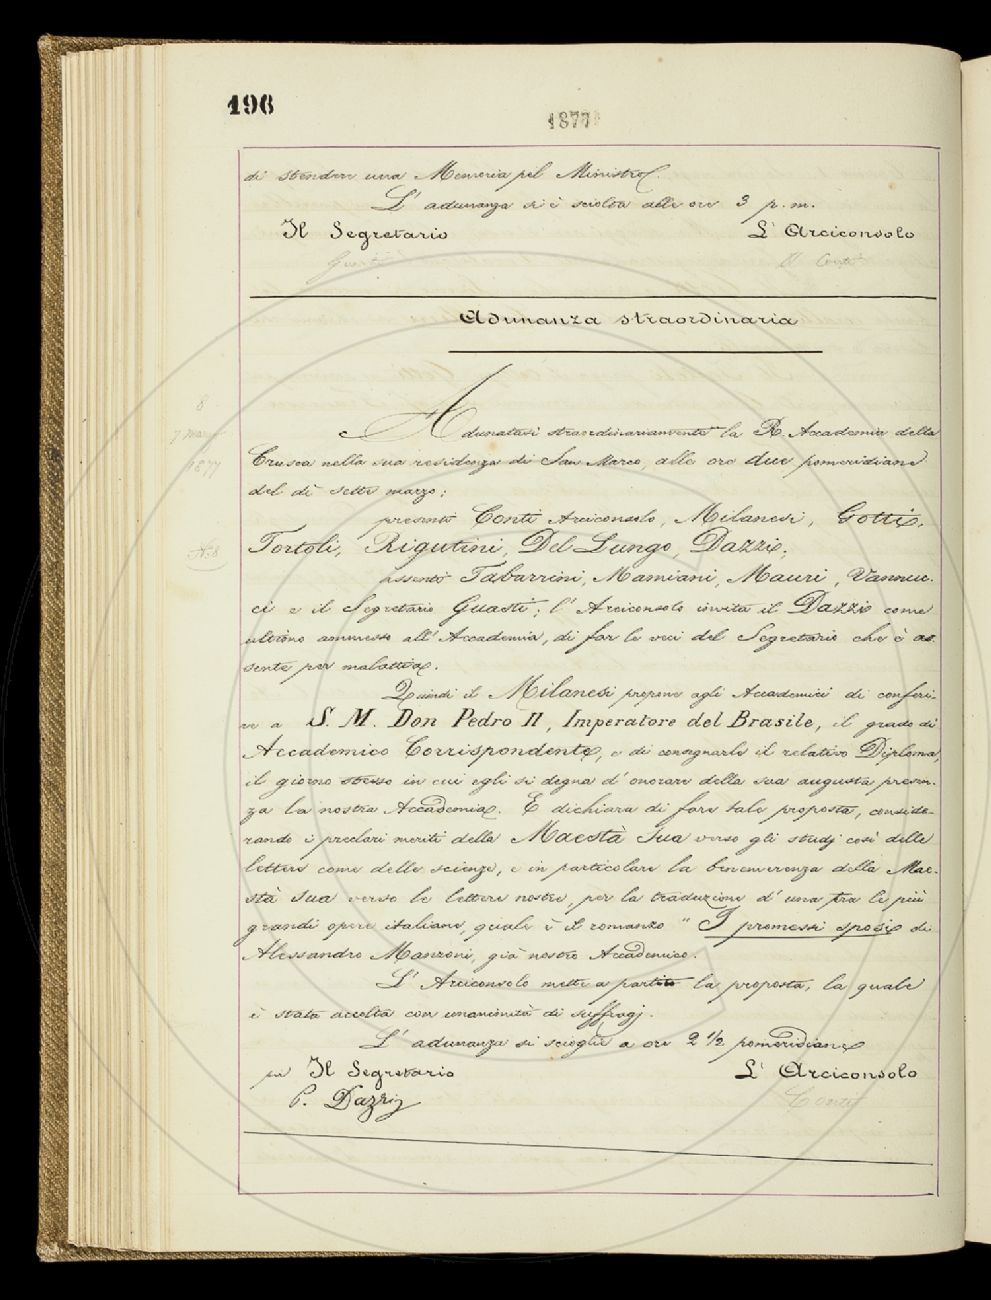 196
1877
di stendere una Memoria pel Ministro.
L' adunanza si è sciolta alle ore 3 p. m.
Il Segretario L' Arciconsolo
Guasti A. Conti
Adunanza straordinaria
8
7 marzo
1877
Adunatasi straordinariamente la R. Accademia della
Crusca nella sua residenza di San Marco, alle ore due pomeridiane
del dì sette marzo;
presenti Conti Arciconsolo, Milanesi, Gotti,
N. 8
Tortoli, Rigutini, Del Lungo, Dazzi;
assenti Tabarrini, Mamiani, Mauri, Vannuc-
ci e il Segretario Guasti; l' Arciconsolo invita il Dazzi come
ultimo ammesso all' Accademia, di far le veci del Segretario che è as-
sente per malattia.
Quindi il Milanesi propone agli Accademici di conferi-
re a S. M. Don Pedro II, Imperatore del Brasile, il grado di
Accademico Corrispondente, e di consegnarle il relativo Diploma,
il giorno stesso in cui egli si degna d' onorare della sua augusta presen-
za la nostra Accademia. E dichiara di fare tale proposta, conside-
rando i preclari meriti della Maestà Sua verso gli studj così delle
lettere come delle scienze, e in particolare la benemerenza della Mae-
stà Sua verso le lettere nostre, per la traduzione d' una fra le più
grandi opere italiane, quale è il romanzo " I promessi sposi di
Alessandro Manzoni, già nostro Accademico.
L' Arciconsolo mette a partito la proposta, la quale
è stata accolta con unanimità di suffragj.
L' adunanza si scioglie a ore 2 1/2 pomeridiane
pel Il Segretario L' Arciconsolo
G. Dazzi Conti